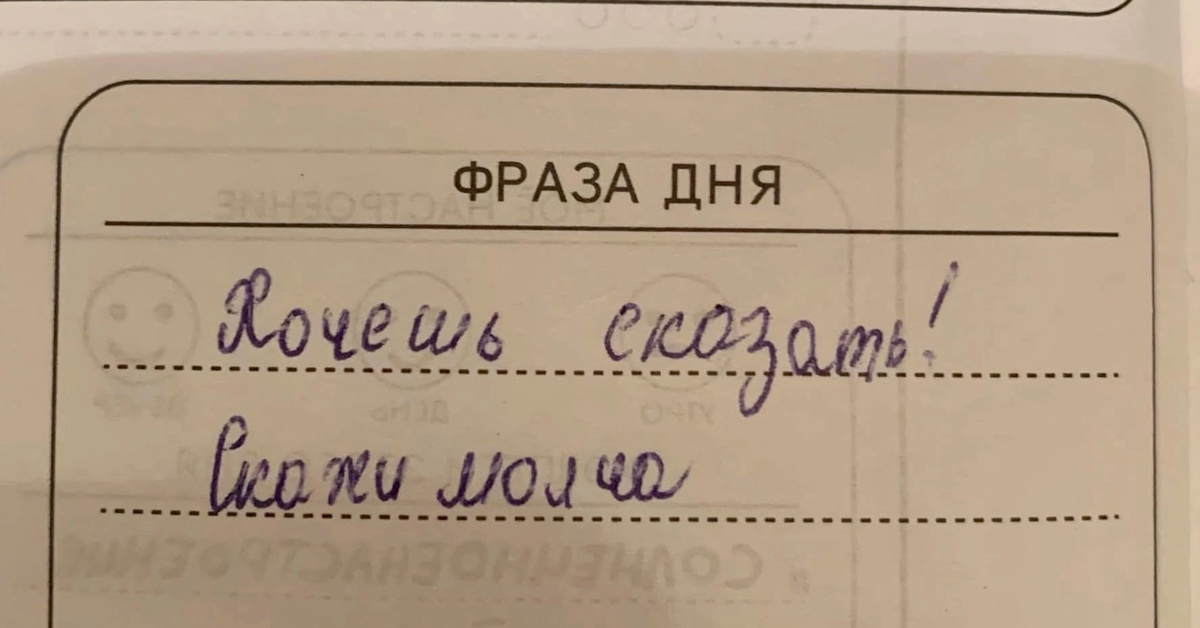 ФРАЗА ДНЯ
Хочешь сказать!
Скажи молча